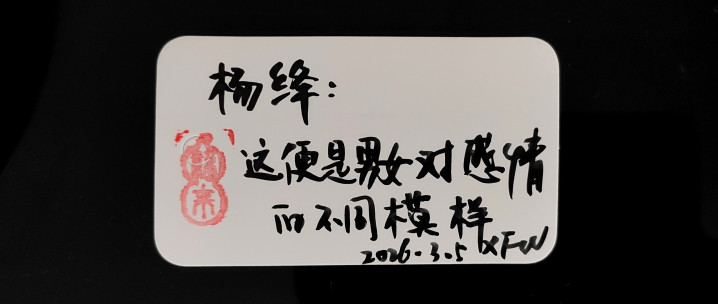 杨绛：
这便是男女对感情
的不同模样
2026.3.5 XFW